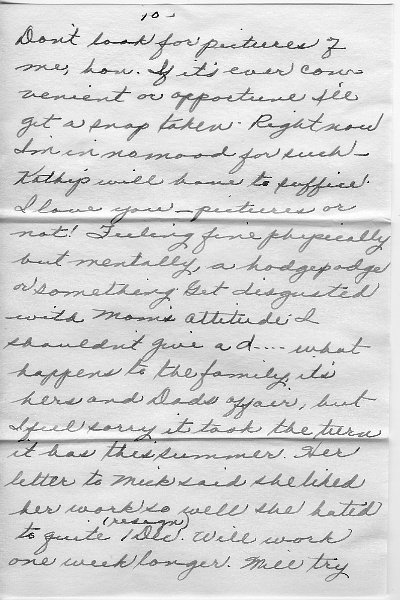 10-
Don't look for pictures of
me, hon. If it's ever con-
venient or opportune I'll
get a snap taken. Right now
I'm in no mood for such -
Kathy's will have to suffice.
I love you - pictures or
not! Feeling fine physically
but mentally, a hodgepodge
or something. Get disgusted
with Mom's attitude. I
shouldn't give a d.... what
happens to the family, it's
hers and Dad's affair, but
I feel sorry it took the turn
it has this summer. Her
letter to Mick said she liked
her work so well she hated
(resign)
to quite 1 Dec. Will work
one week longer. Will try